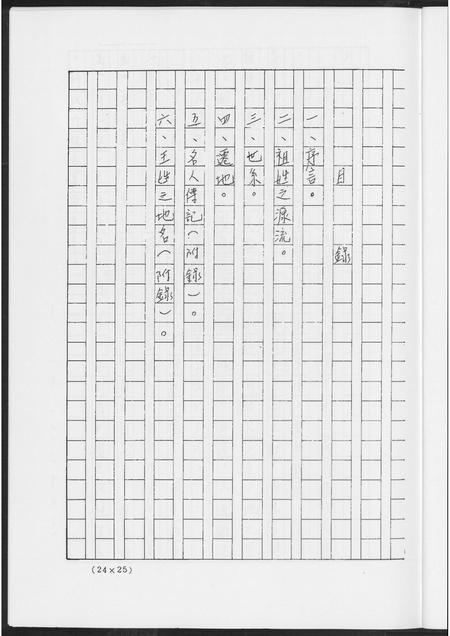 目錄
一、序言。
二、祖姓之源流。
三、世系。
四、遷地。
五、名人傳記（附錄）。
六、王姓之地名（附錄）。
(24×25)